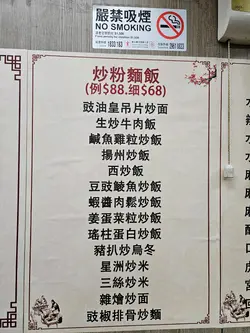 嚴禁吸煙
NO SMOKING
炒粉麵飯
(例$88.细$68)
豉油皇吊片炒面
生炒牛肉飯
鹹魚雞粒炒飯
揚州炒飯
西炒飯
豆豉鯪魚炒飯
蝦醬肉鬆炒飯
姜蛋菜粒炒飯
瑤柱蛋白炒飯
豬扒炒烏冬
星洲炒米
三絲炒米
雜燴炒面
豉椒排骨炒麵